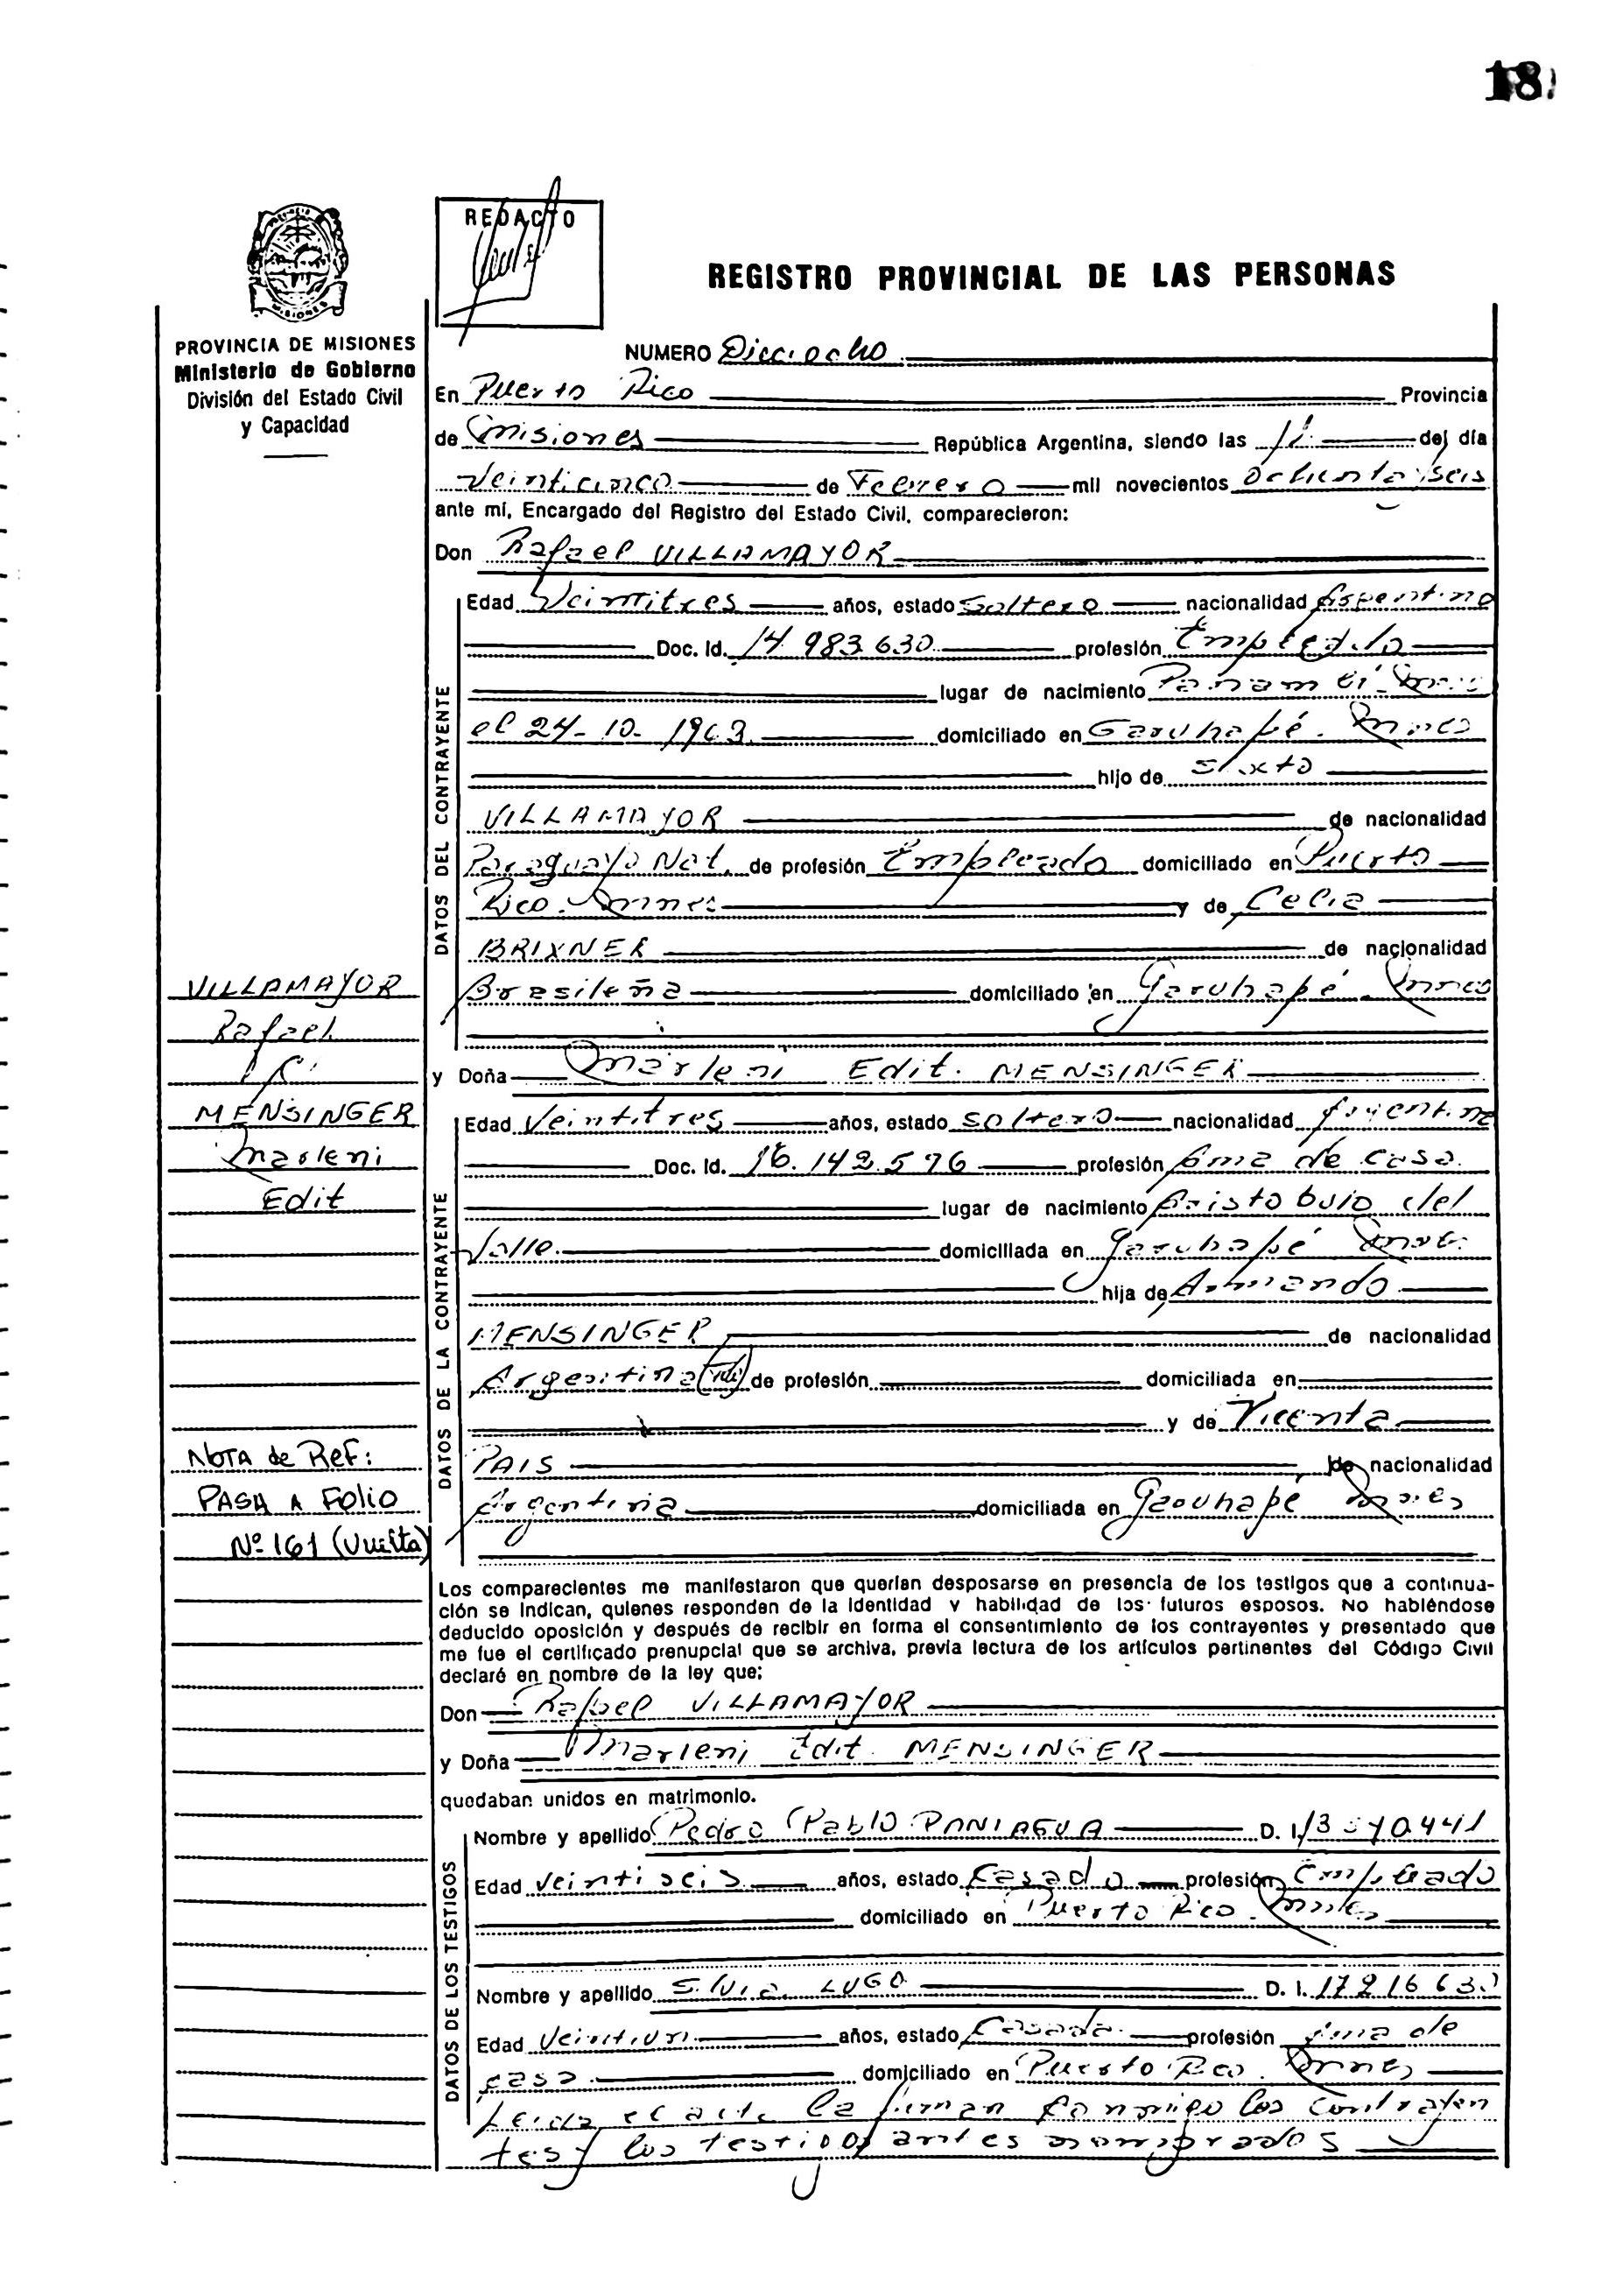 18
REDACTO
REGISTRO PROVINCIAL DE LAS PERSONAS
PROVINCIA DE MISIONES
Ministerio de Gobierno
División del Estado Civil
y Capacidad
NUMERO Dieciocho
En Puerto Rico Provincia
de Misiones República Argentina, siendo las 11 del día
Veinticinco de Febrero mil novecientos ochenta y seis
ante mí, Encargado del Registro del Estado Civil, comparecieron:
Don Rafael VILLAMAYOR
DATOS DEL CONTRAYENTE
Edad Veintitres años, estado Soltero nacionalidad Argentino
Doc. Id. 14.983.630 profesión Empleado
lugar de nacimiento Panambí
el 24-10-1963 domiciliado en Garuhapé
hijo de Sixto
VILLAMAYOR de nacionalidad
Paraguayo Nat. de profesión Empleado domiciliado en Puerto
Rico y de Celia
BRIXNER de nacionalidad
Brasileña domiciliado en Garuhapé
y Doña Marleni Edit. MENSINGER
DATOS DE LA CONTRAYENTE
Edad Veintitres años, estado soltera nacionalidad Argentina
Doc. Id. 16.142.596 profesión Ama de casa
lugar de nacimiento Aristobulo del
Valle domiciliada en Garuhapé
hija de Armando
MENSINGER de nacionalidad
Argentina de profesión domiciliada en
y de Vicenta
PAIS de nacionalidad
Argentina domiciliada en Garuhapé
VILLAMAYOR
Rafael
MENSINGER
Marleni
Edit
NOTA de REF:
PASA A Folio
Nº 161 (Vuelta)
Los comparecientes me manifestaron que querían desposarse en presencia de los testigos que a continua-
ción se indican, quienes responden de la identidad y habilidad de los futuros esposos. No habiéndose
deducido oposición y después de recibir en forma el consentimiento de los contrayentes y presentado que
me fue el certificado prenupcial que se archiva, previa lectura de los artículos pertinentes del Código Civil
declaré en nombre de la ley que:
Don Rafael VILLAMAYOR
y Doña Marleni Edit MENSINGER
quedaban unidos en matrimonio.
DATOS DE LOS TESTIGOS
Nombre y apellido Pedro Pablo PANIAGUA D. I.
Edad Veintiseis años, estado Casado profesión Empleado
domiciliado en Puerto Rico
Nombre y apellido Silvia LUGO D. I.
Edad Veintiun años, estado Casada profesión Ama de
casa domiciliado en Puerto Rico
Leída el acta la firman conmigo los contrayen
tes y los testigos antes nombrados